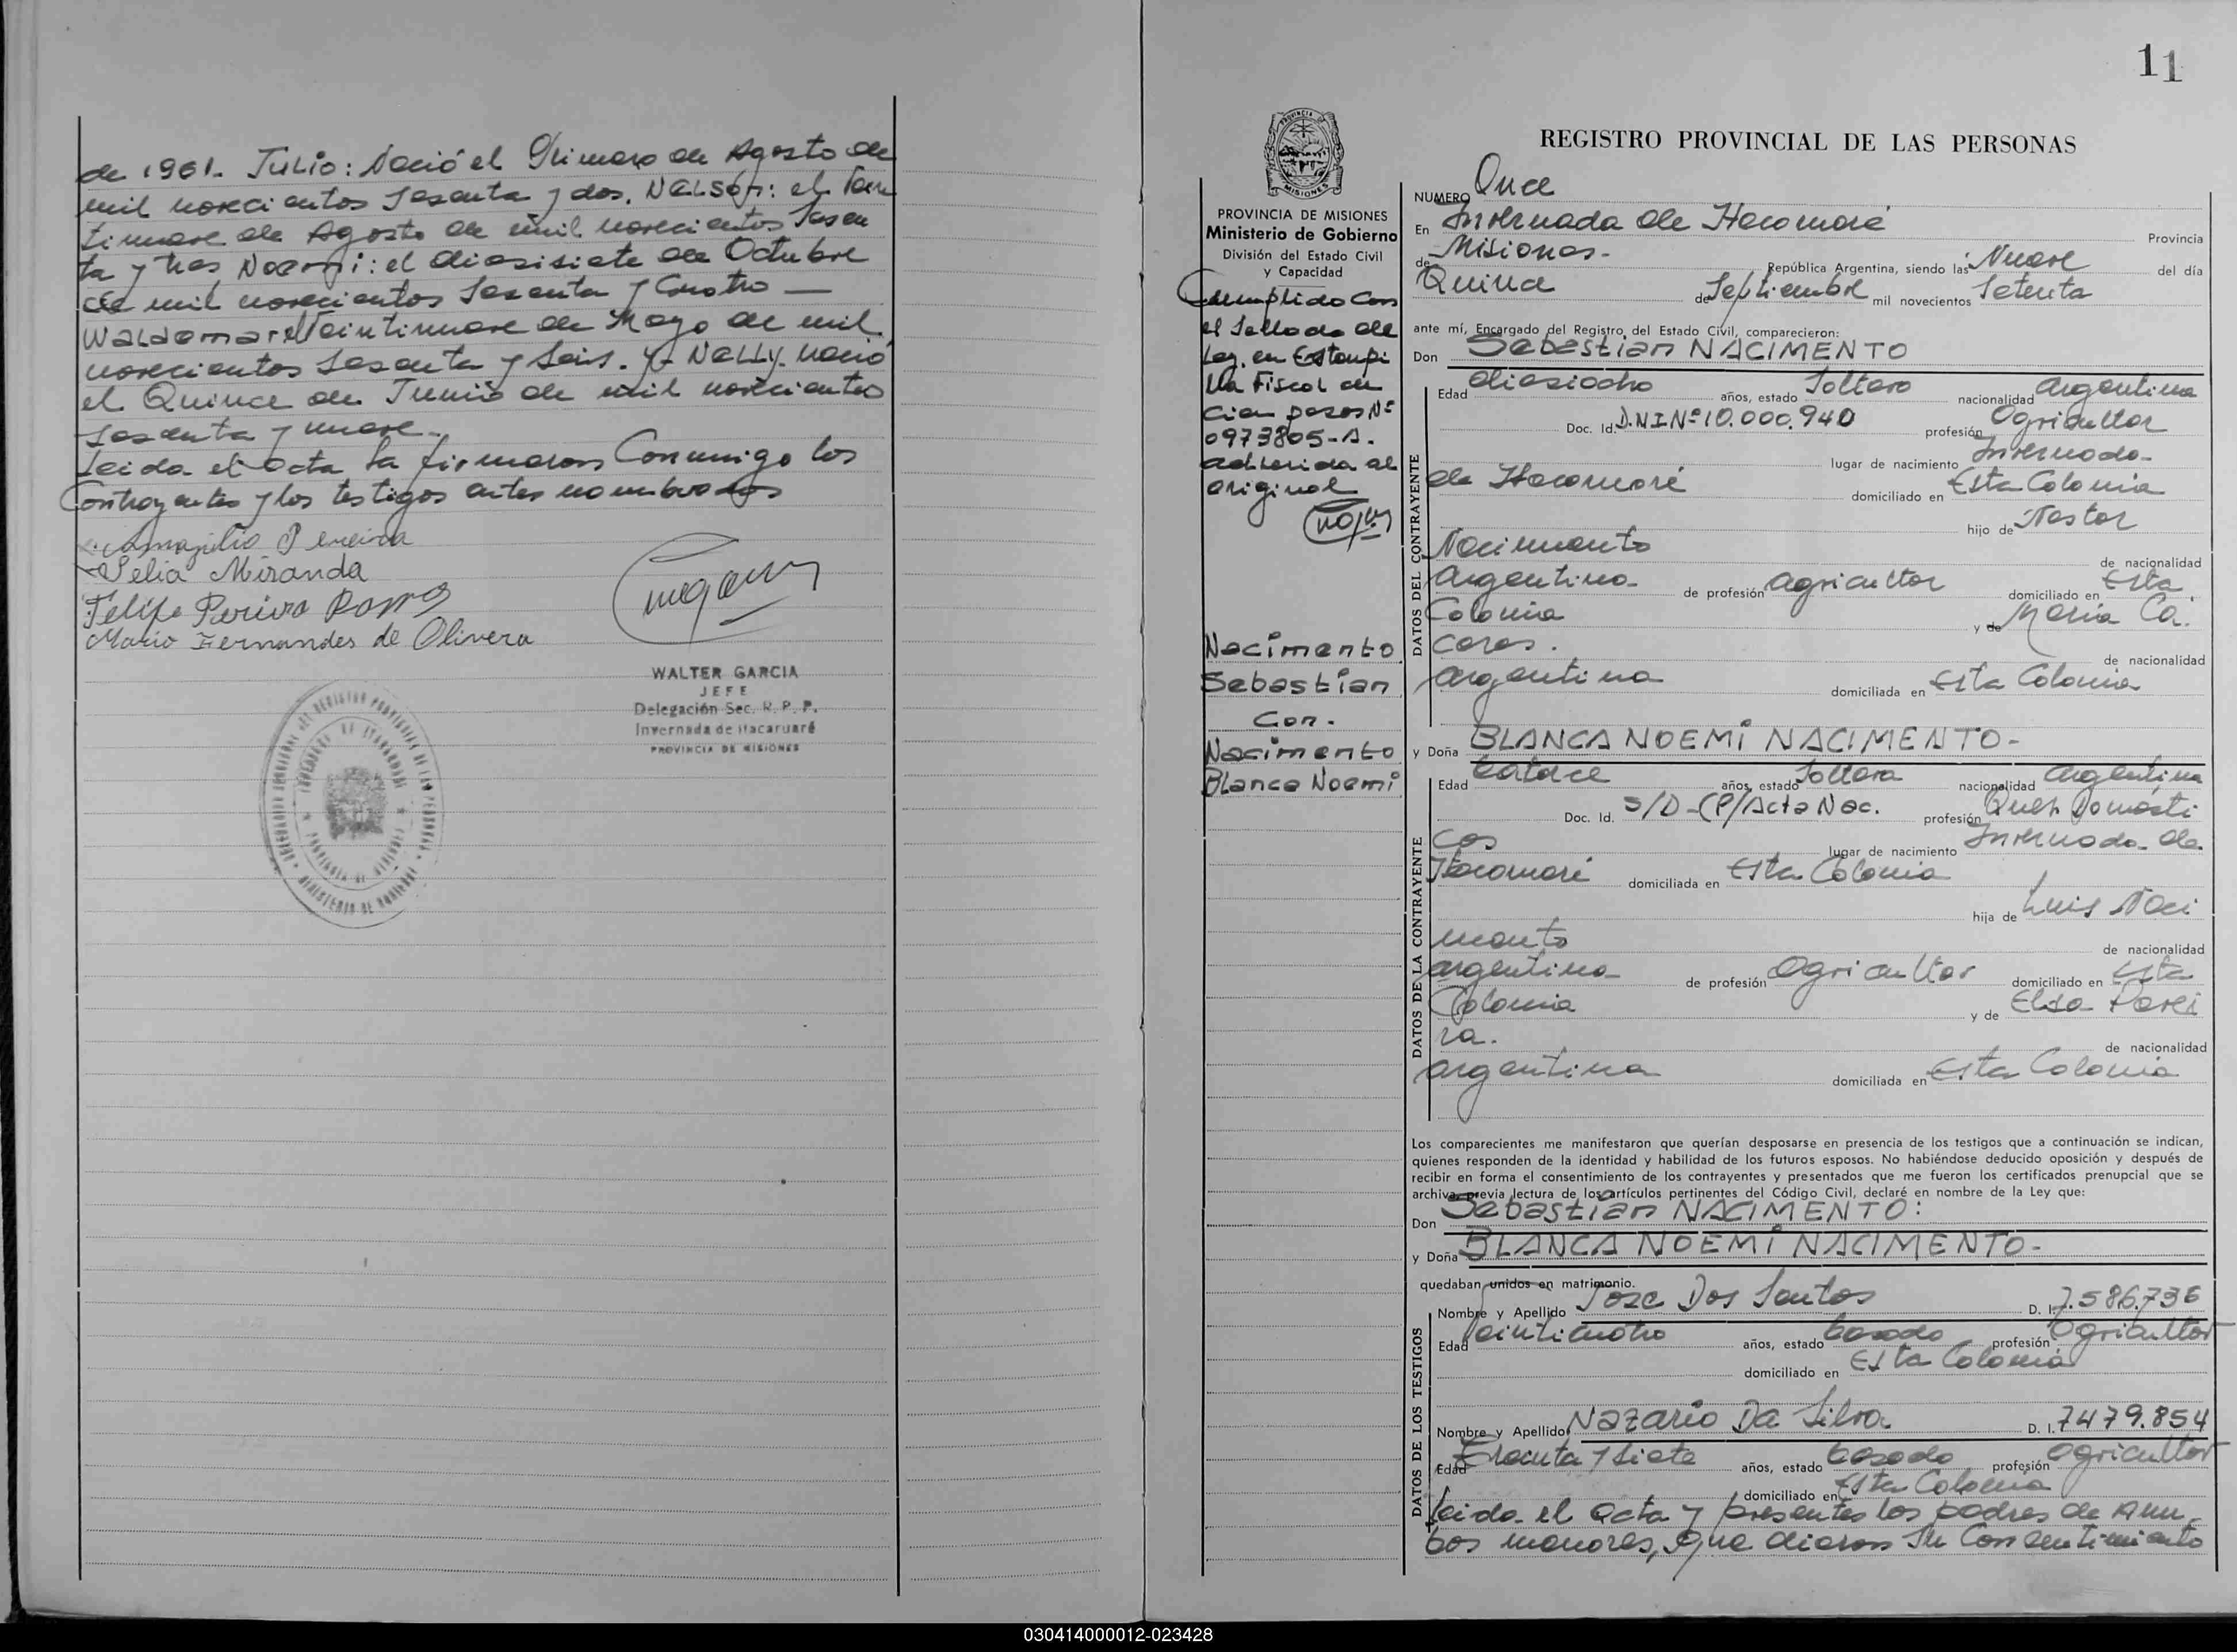 de 1961. Julio: Nació el Primero de Agosto de
mil novecientos Sesenta y dos. Nelson: el Vein
tinueve de Agosto de mil novecientos Sesen
ta y tres Noemi: el diesisiete de Octubre
de mil novecientos Sesenta y Cuatro —
Waldemar: Veintinueve de Mayo de mil
novecientos Sesenta y Seis. y Nelly. nació
el Quince de Junio de mil novecientos
sesenta y nueve.
Leida el Acta la firmaron Conmigo los
Contrayentes y los testigos antes nombrados
Pereira
Miranda
Felipe
Mario Fernandes de Olivera
WALTER GARCIA
JEFE
Delegación Sec. R. P. P.
Invernada de Itacaruaré
PROVINCIA DE MISIONES
11
PROVINCIA DE MISIONES
Ministerio de Gobierno
División del Estado Civil
y Capacidad
Cumplido Con
el Sellado de
Ley. en Estampi
lla Fiscal de
Cien pesos Nº
0973805-A.
adherida al
original
Nacimento
Sebastian
Con.
Nacimento
Blanca Noemi
REGISTRO PROVINCIAL DE LAS PERSONAS
NUMERO Once
En Invernada de Itacaruaré Provincia
de Misiones- República Argentina, siendo las Nueve del día
Quince de Septiembre mil novecientos Setenta
ante mí, Encargado del Registro del Estado Civil, comparecieron:
Don Sebastian NACIMENTO
DATOS DEL CONTRAYENTE
Edad diesiocho años, estado Soltero nacionalidad argentina
Doc. Id. D.N.I Nº 10.000.940 profesión Agricultor
lugar de nacimiento Invernada-
de Itacaruaré domiciliado en Esta Colonia
hijo de Nestor
Nacimento de nacionalidad
argentina- de profesión agricultor domiciliado en Esta
Colonia y de Maria Ca.
ceres. de nacionalidad
argentina domiciliada en Esta Colonia
y Doña BLANCA NOEMI NACIMENTO-
DATOS DE LA CONTRAYENTE
Edad Catorce años, estado Soltera nacionalidad argentina
Doc. Id. S/D-(P/Acta Nac. profesión Queh. Domésti
cos lugar de nacimiento Invernada de
Itacaruaré domiciliada en Esta Colonia
hija de Luis Naci
mento de nacionalidad
argentina de profesión Agricultor domiciliado en Esta
Colonia y de Elsa Perei
ra. de nacionalidad
argentina domiciliada en Esta Colonia
Los comparecientes me manifestaron que querían desposarse en presencia de los testigos que a continuación se indican,
quienes responden de la identidad y habilidad de los futuros esposos. No habiéndose deducido oposición y después de
recibir en forma el consentimiento de los contrayentes y presentados que me fueron los certificados prenupcial que se
archiva previa lectura de los artículos pertinentes del Código Civil, declaré en nombre de la Ley que:
Don Sebastian NACIMENTO:
y Doña BLANCA NOEMI NACIMENTO-
quedaban unidos en matrimonio.
DATOS DE LOS TESTIGOS
Nombre y Apellido Jose Dos Santos D. I. 7.586.736
Edad Veinticuatro años, estado Casado profesión Agricultor
domiciliado en Esta Colonia
Nombre y Apellido Nazario Da Silva D. I. 7479.854
Edad Treinta y Siete años, estado Casado profesión Agricultor
domiciliado en Esta Colonia
Leida el Acta y presentes los padres de Am
bos menores, que dieron Su Consentimiento
030414000012-023428